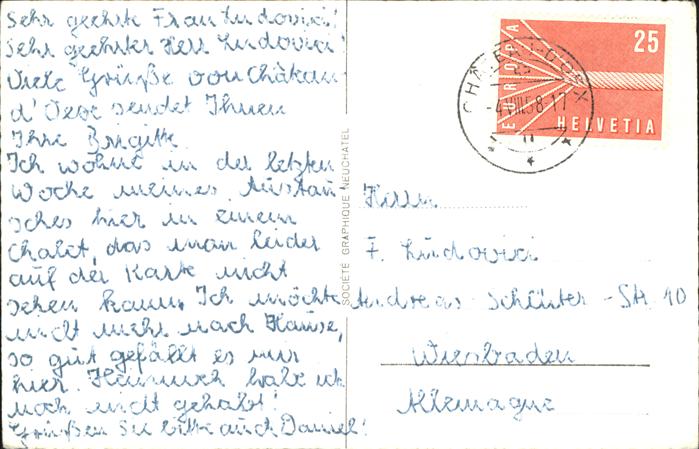 Sehr geehrte Frau Ludovici!
Sehr geehrter Herr Ludovici!
Viele Grüße von Châteaud'Oex sendet Ihnen
Ihre Brigitte.
Ich wohne in der letzten
Woche meines Austausches hier in einem
Chalet, das man leider
auf der Karte nicht
sehen kann. Ich möchte
nicht mehr nach Hause,
so gut gefällt es mir
hier. Heimweh habe ich
noch nicht gehabt!
Grüßen Sie bitte auch Daniel!
SOCIÉTÉ GRAPHIQUE NEUCHATEL
EUROPA
25
HELVETIA
CHÂTEAU-D'OEX
-4.VIII.58.17
Herrn
F. Ludovici
Andreas-Schlüter-Str. 10
Wiesbaden
Allemagne